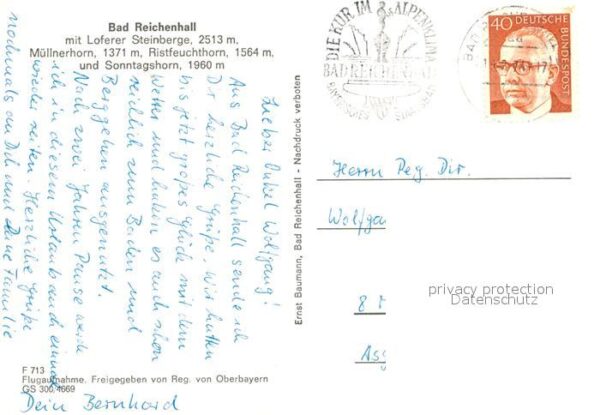 Bad Reichenhall
mit Loferer Steinberge, 2513 m,
Müllnerhorn, 1371 m, Ristfeuchthorn, 1564 m,
und Sonntagshorn, 1960 m
Lieber Onkel Wolfgang!
Aus Bad Reichenhall sende ich
Dir herzliche Grüße. Wir hatten
bis jetzt großes Glück mit dem
Wetter und haben es auch schon
reichlich zum Baden und
Berggehen ausgenutzt.
Nach zwei Jahren Pause werde
ich in diesem Urlaub auch einmal
wieder reiten. Herzliche Grüße
nochmals an Dich und Deine Familie
Dein Bernhard
F 713
Flugaufnahme. Freigegeben von Reg. von Oberbayern
GS 300/4669
Ernst Baumann, Bad Reichenhall - Nachdruck verboten
DIE KUR IM ALPENKLIMA
BAD REICHENHALL
BAYERISCHES STAATSBAD
BAD REICHENHALL
40 DEUTSCHE
BUNDESPOST
Herrn Reg. Dir.
Wolfga
8
As
privacy protection
Datenschutz